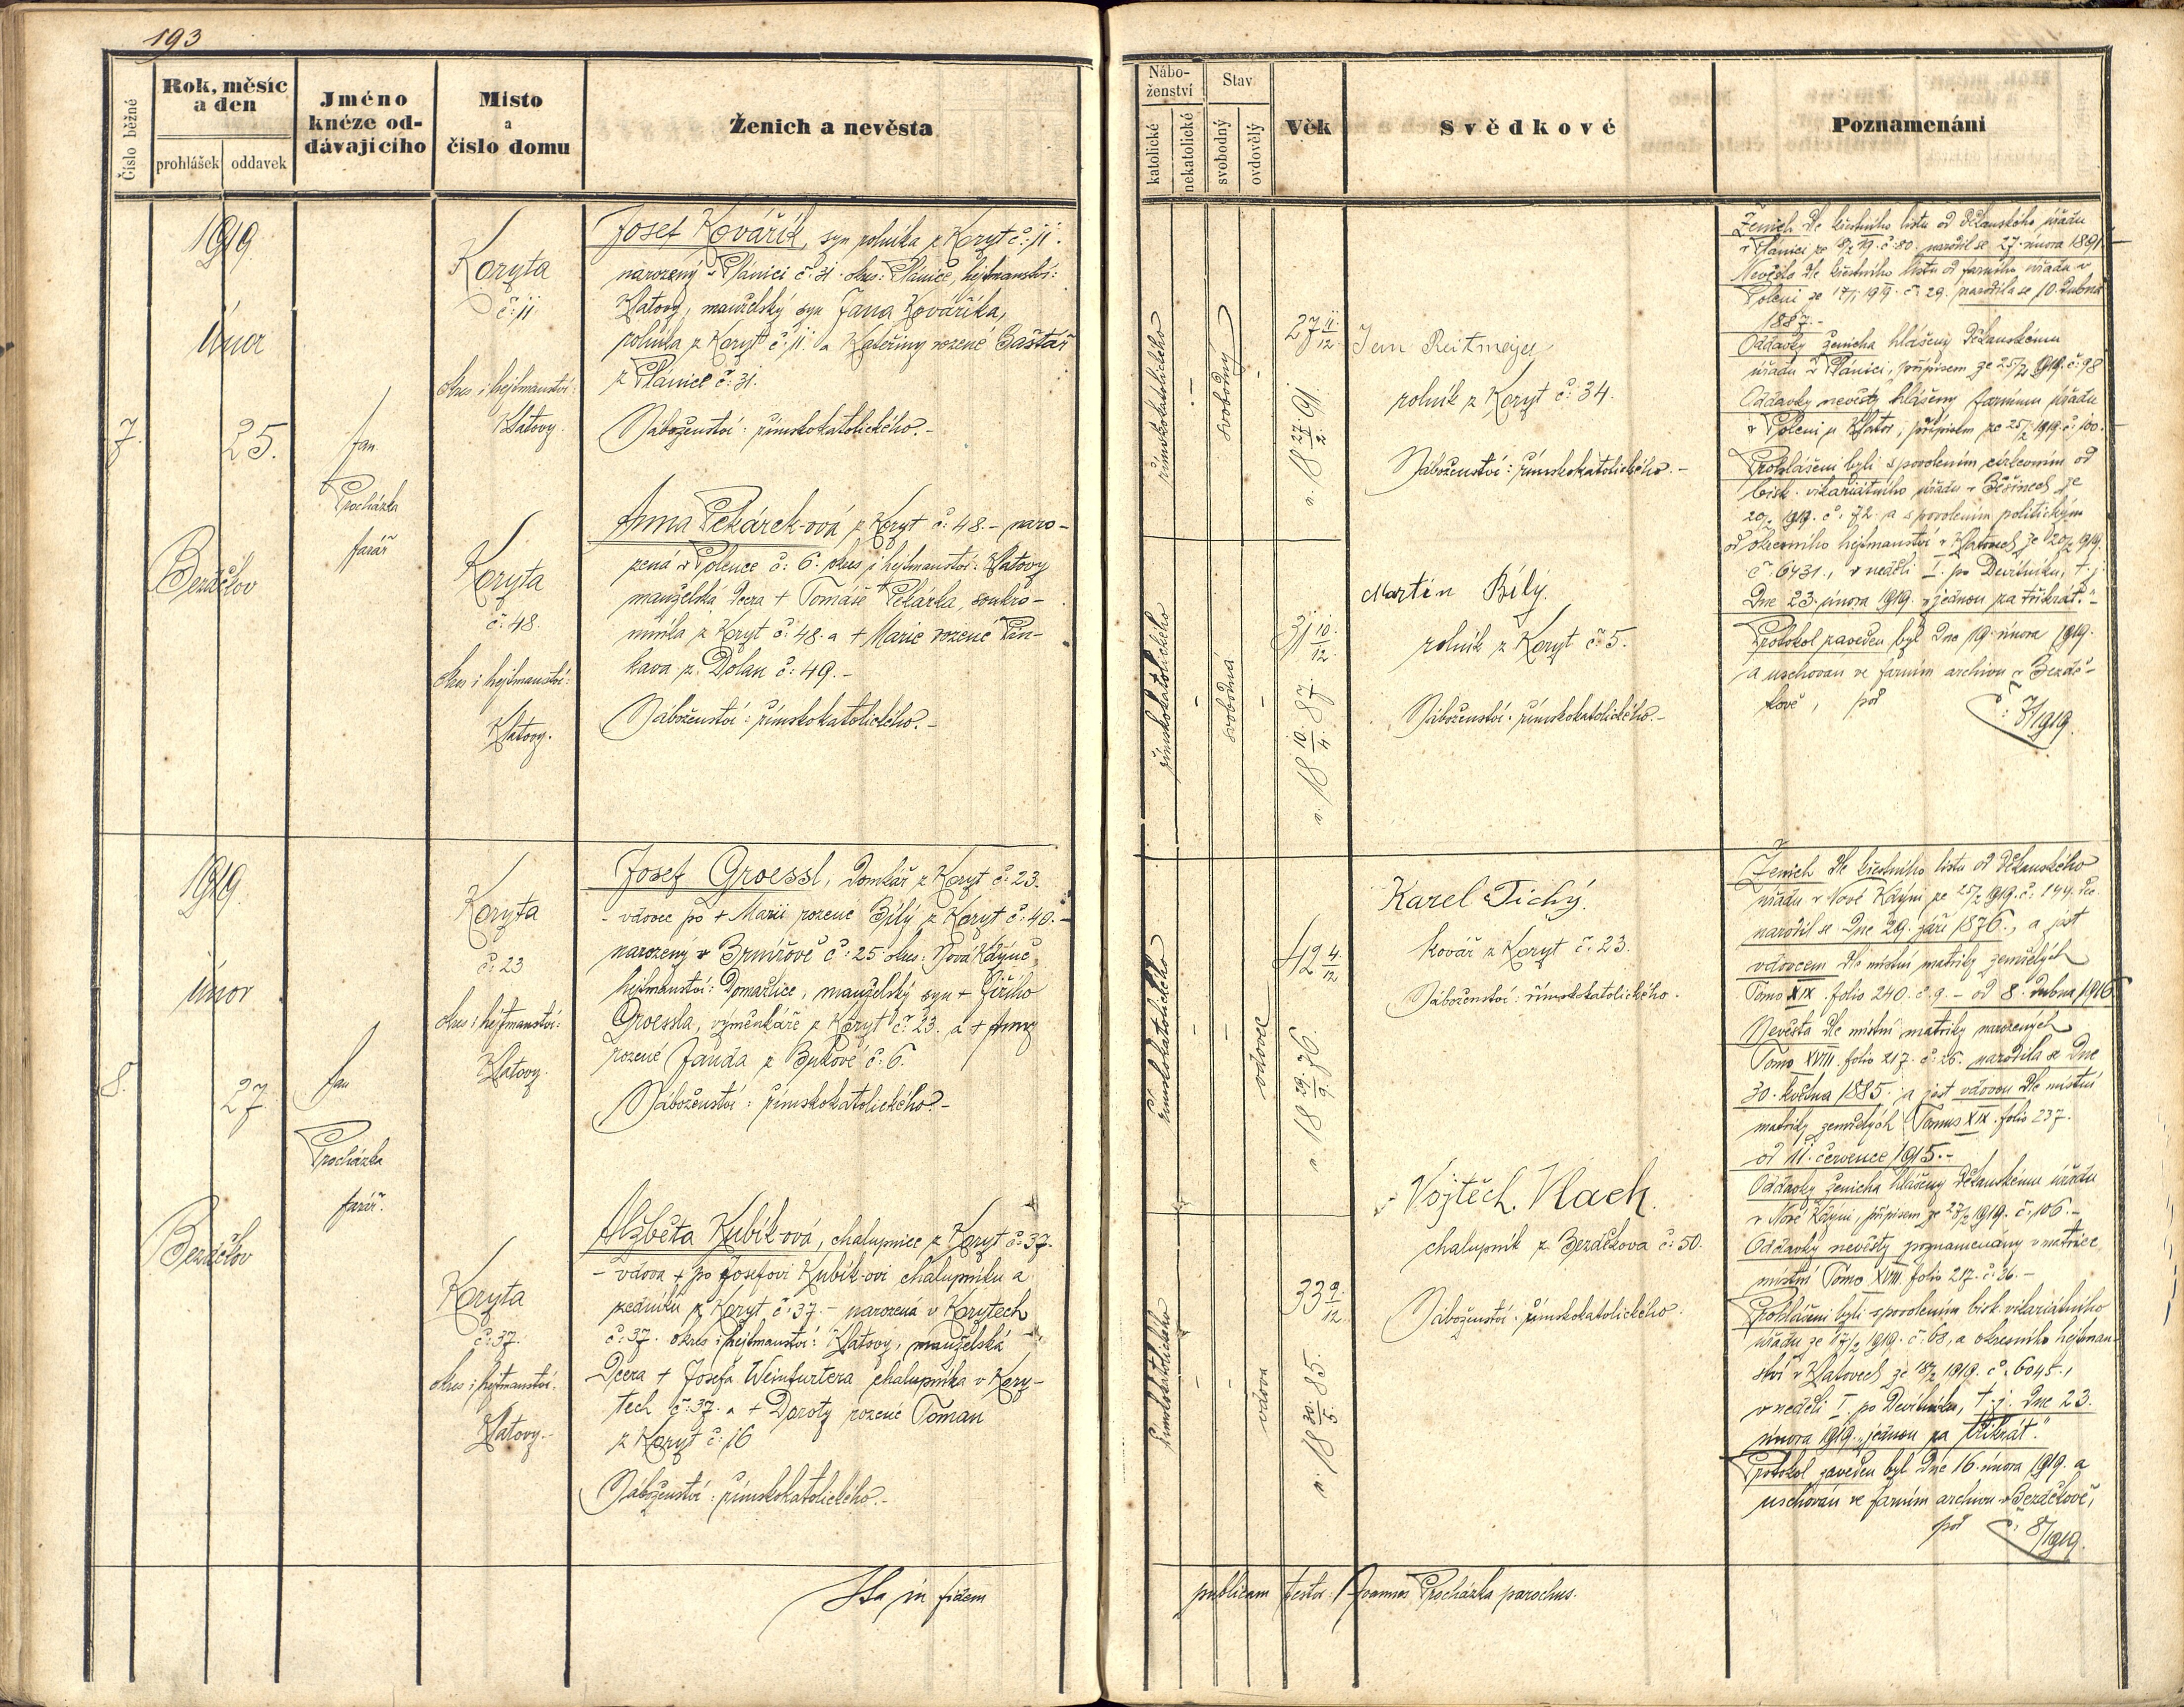 193
Číslo běžné
Rok, měsíc
a den
prohlášek
oddavek
Jméno
knéze od-
dávajícího
Místo
a
číslo domu
Ženich a nevěsta
Nábo-
ženství
katolické
nekatolické
Stav
svobodný
ovdovělý
Věk
Svědkové
Poznamenání
1919.
únor
7.
25.
Bezděkov
Jan
Procházka
farář
Koryta
č: 11
okres i hejtmanství:
Klatovy.
Josef Kovářík, syn rolníka z Koryt č: 11.
narozený v Plánici č: 31. okres: Plánice, hejtmanství:
Klatovy, manželský syn Jana Kováříka,
rolníka z Koryt č: 11 a Kateřiny rozené Baštář
z Plánice č: 31.
Náboženství: římskokatolického.-
Koryta
č: 48.
okres i hejtmanství:
Klatovy.
Anna Pekárek-ová z Koryt č: 48.- naro-
zená v Polence č: 6. okres i hejtmanství: Klatovy
manželská dcera + Tomáše Pekárka, soukro-
mníka z Koryt č: 48. a + Marie rozené
kava z Dolan č: 49.-
Náboženství: římskokatolického.-
římskokatolického
-
svobodný
27 11/12
n. 18 27/2. 91.
Jan Reitmeyer
rolník z Koryt č: 34.
Náboženství: římskokatolického.-
římskokatolického
-
svobodná
-
31 10/12.
n. 18 10./4. 87.
Martin Bílý.
rolník z Koryt č: 5.
Náboženství: římskokatolického.-
Ženich dle křestního listu od děkanského úřadu
v Plánici č: 80. narodil se 27. února 1891.
Nevěsta dle křestního listu od farního úřadu v
Poleni č: 29. narodila se 10. dubna
1887.-
Oddavky ženicha hlášeny děkanskému
úřadu v Plánici, přípisem ze 25/2 1919. č: 98
Oddavky nevěsty hlášeny farnímu úřadu
v Poleni u Klatov, přípisem ze 25/2 1919. č: 100.
Prohlášeni byli s povolením církevním od
bisk. vikariátního úřadu v Běšinech ze
20/2 1919. č: 72. a s povolením politickým
od okresního hejtmanství v Klatovech ze 20/2 1919.
č: 6431., v neděli I. po Devítníku, t. j.
dne 23. února 1919. „jednou za třikrát."-
Protokol zaveden byl dne 19. února 1919.
a uschován ve farním archivu v Bezdě-
kově, pod č: 7/1919.
1919.
únor
8.
27
Bezděkov
Jan
Procházka
farář.
Koryta
č: 23
okres i hejtmanství:
Klatovy.
Josef Groessl, domkář z Koryt č: 23.
- vdovec po + Marii rozené Bílý z Koryt č: 40.-
narozený v Brnířově č: 25. okres: Nová Kdyně,
hejtmanství: Domažlice, manželský syn + Jiřího
Groessla, výměnkáře z Koryt č: 23. a + Anny
rozené Janda z Bykově č: 6.
Náboženství: římskokatolického.-
Koryta
č: 37.
okres i hejtmanství:
Klatovy.-
Alžběta Kubík-ová, chalupnice z Koryt č: 37.
- vdova + po Josefovi Kubík-ovi chalupníku a
zedníku z Koryt č: 37.- narozená v Korytech
č: 37. okres i hejtmanství: Klatovy, manželská
dcera + Josefa Weinfurtera chalupníka v Kory-
tech č: 37. a + Doroty rozené Toman
z Koryt č: 16
Náboženství: římskokatolického.-
římskokatolického
-
-
vdovec
42 4/12
n. 18 29./9. 76.
Karel Tichý.
kovář z Koryt č: 23.
Náboženství: římskokatolického.
římskokatolického
-
-
vdova
33 9/12.
n. 18 30./5. 85.
Vojtěch Vlach.
chalupník z Bezděkova č: 50.
Náboženství: římskokatolického.
Ženich dle křestního listu od děkanského
úřadu v Nové Kdyni ze 25/2 1919. č: 144.
narodil se dne 29. září 1876., a jest
vdovcem dle místní matriky zemřelých
Tomo XIX. folio 240. č. 9.- od 8. dubna 1916.
Nevěsta dle místní matriky narozených
Tomo XVIII. folio 217. č: 26. narodila se dne
30. května 1885. a jest vdovou dle místní
matriky zemřelých Tomus XIX. folio 237.
od 11. července 1915.-
Oddavky ženicha hlášeny děkanskému úřadu
v Nové Kdyni, přípisem ze 27/2 1919. č: 106.-
Oddavky nevěsty poznamenány v matrice
místní Tomo XVIII. folio 217. č: 26.-
Prohlášeni byli s povolením bisk. vikariátního
úřadu ze 17/2 1919. č: 68, a okresního hejtman-
ství v Klatovech ze 18/2 1919. č: 6045.,
v neděli I. po Devítníku, t. j. dne 23.
února 1919. „jednou za třikrát."
Protokol zaveden byl dne 16. února 1919. a
uschován ve farním archivu v Bezděkově,
pod č: 8/1919.
Ita in fidem publicam testor: Joannes Procházka parochus.